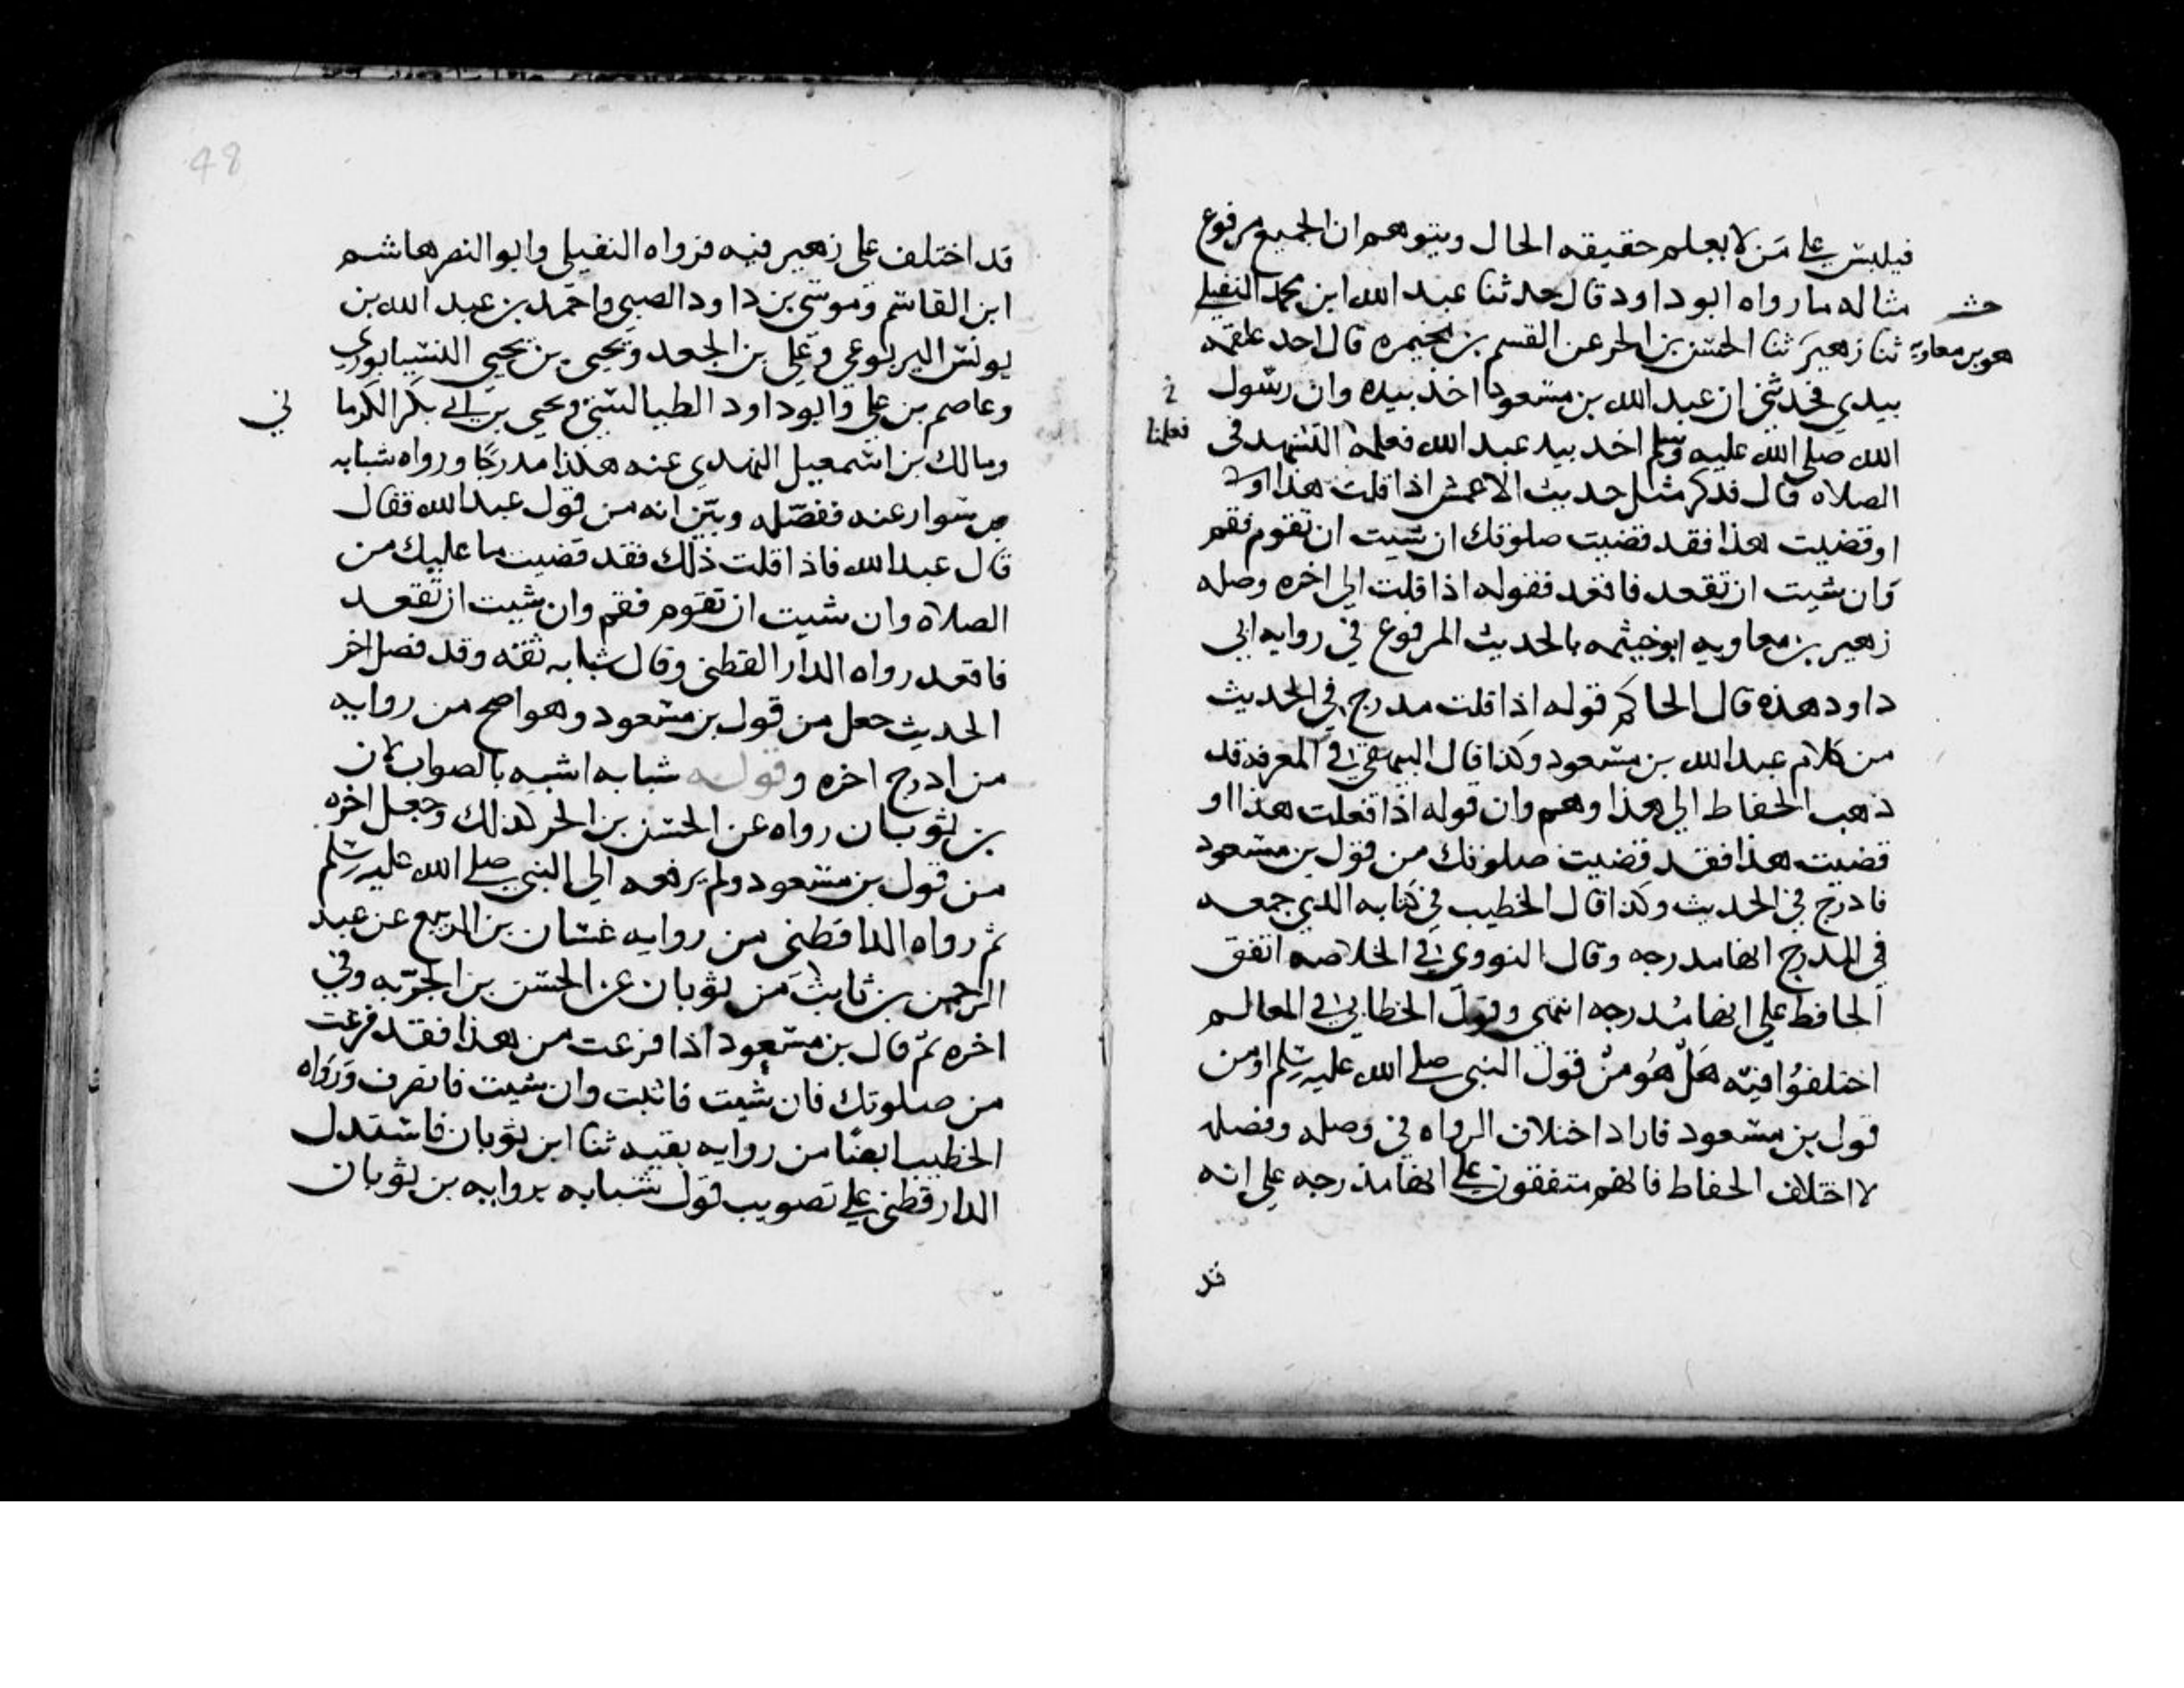 فيلبس على من لا يعلم حقيقه الحال ويتوهم ان الجميع مرفوع
مثاله ما رواه ابو داود قال حدثنا عبد الله ابن محمد النفيلي
هو بن معاوية
ثنا زهير ثنا الحسن بن الحر عن القسم بن مخيمره قال اخد علقمه
بيدي فحدثني ان عبد الله بن مسعود اخذ بيده وان رسول
الله صلى الله عليه وسلم اخد بيد عبد الله فعلمه التشهد في
فعلمنا
الصلاه قال فدكر مثل حديث الاعمش اذا قلت هذا او
او قضيت هذا فقد قضيت صلوتك ان شيت ان تقوم فقم
وان شيت ان تقعد فاقعد فقوله اذا قلت الى اخره وصله
زهير بن معاويه ابو خيثمه بالحديث المرفوع في روايه ابي
داود هذه قال الحاكم قوله اذا قلت مدرج في الحديث
من كلام عبد الله بن مسعود وكذا قال البيهقي في المعرفه قد
ذهب الحفاظ الى هذا وهم وان قوله اذا فعلت هذا او
قضيت هذا فقد قضيت صلوتك من قول بن مسعود
فادرج في الحديث وكذا قال الخطيب في كتابه الدي جمعه
في المدرج انها مدرجه وقال النووي في الخلاصه اتفق
الحافظ على انها مدرجه انتهى وقول الخطابي في المعالم
اختلفوا فيه هل هو من قول النبي صلى الله عليه وسلم او من
قول بن مسعود فاراد اختلاف الرواه في وصله وفصله
لا اختلاف الحفاظ فانهم متفقون على انها مدرجه على انه
قد
قد اختلف على زهير فيه فرواه النفيلي وابو النضر هاشم
ابن القاسم وموسى بن داود الضبي واحمد بن عبد الله بن
يونس اليربوعي وعلي بن الجعد ويحيى بن يحيى النسيابوري
وعاصم بن علي وابو داود الطيالسي ويحيى بن ابي بكر الكرما
ني
ومالك بن اسمعيل النهدي عنه هكذا مدرجا ورواه شبابه
بن سوار عنه ففصله وبين انه من قول عبد الله فقال
قال عبد الله فاذا قلت ذلك فقد قضيت ما عليك من
الصلاة وان شيت ان تقوم فقم وان شيت ان تقعد
فاقعد رواه الدار القطني وقال شبابه ثقه وقد فصل اخر
الحديث جعل من قول بن مسعود وهو اصح من روايه
من ادرج اخره وقوله شبابه اشبه بالصواب لان
بن ثوبان رواه عن الحسن بن الحر كذلك وجعل اخره
من قول بن مسعود ولم يرفعه الى النبي صلى الله عليه وسلم
ثم رواه الداقطني من روايه غسان بن الربيع عن عبد
الرحمن بن ثابت من ثوبان عن الحسن بن الحر به وفي
اخره ثم قال بن مسعود اذا فرغت من هذا فقد فرغت
من صلوتك فان شيت فاثبت وان شيت فانصرف ورواه
الخطيب ايضا من روايه بقيه ثنا ابن ثوبان فاستدل
الدارقطني على تصويب قول شبابه بروايه بن ثوبان
48